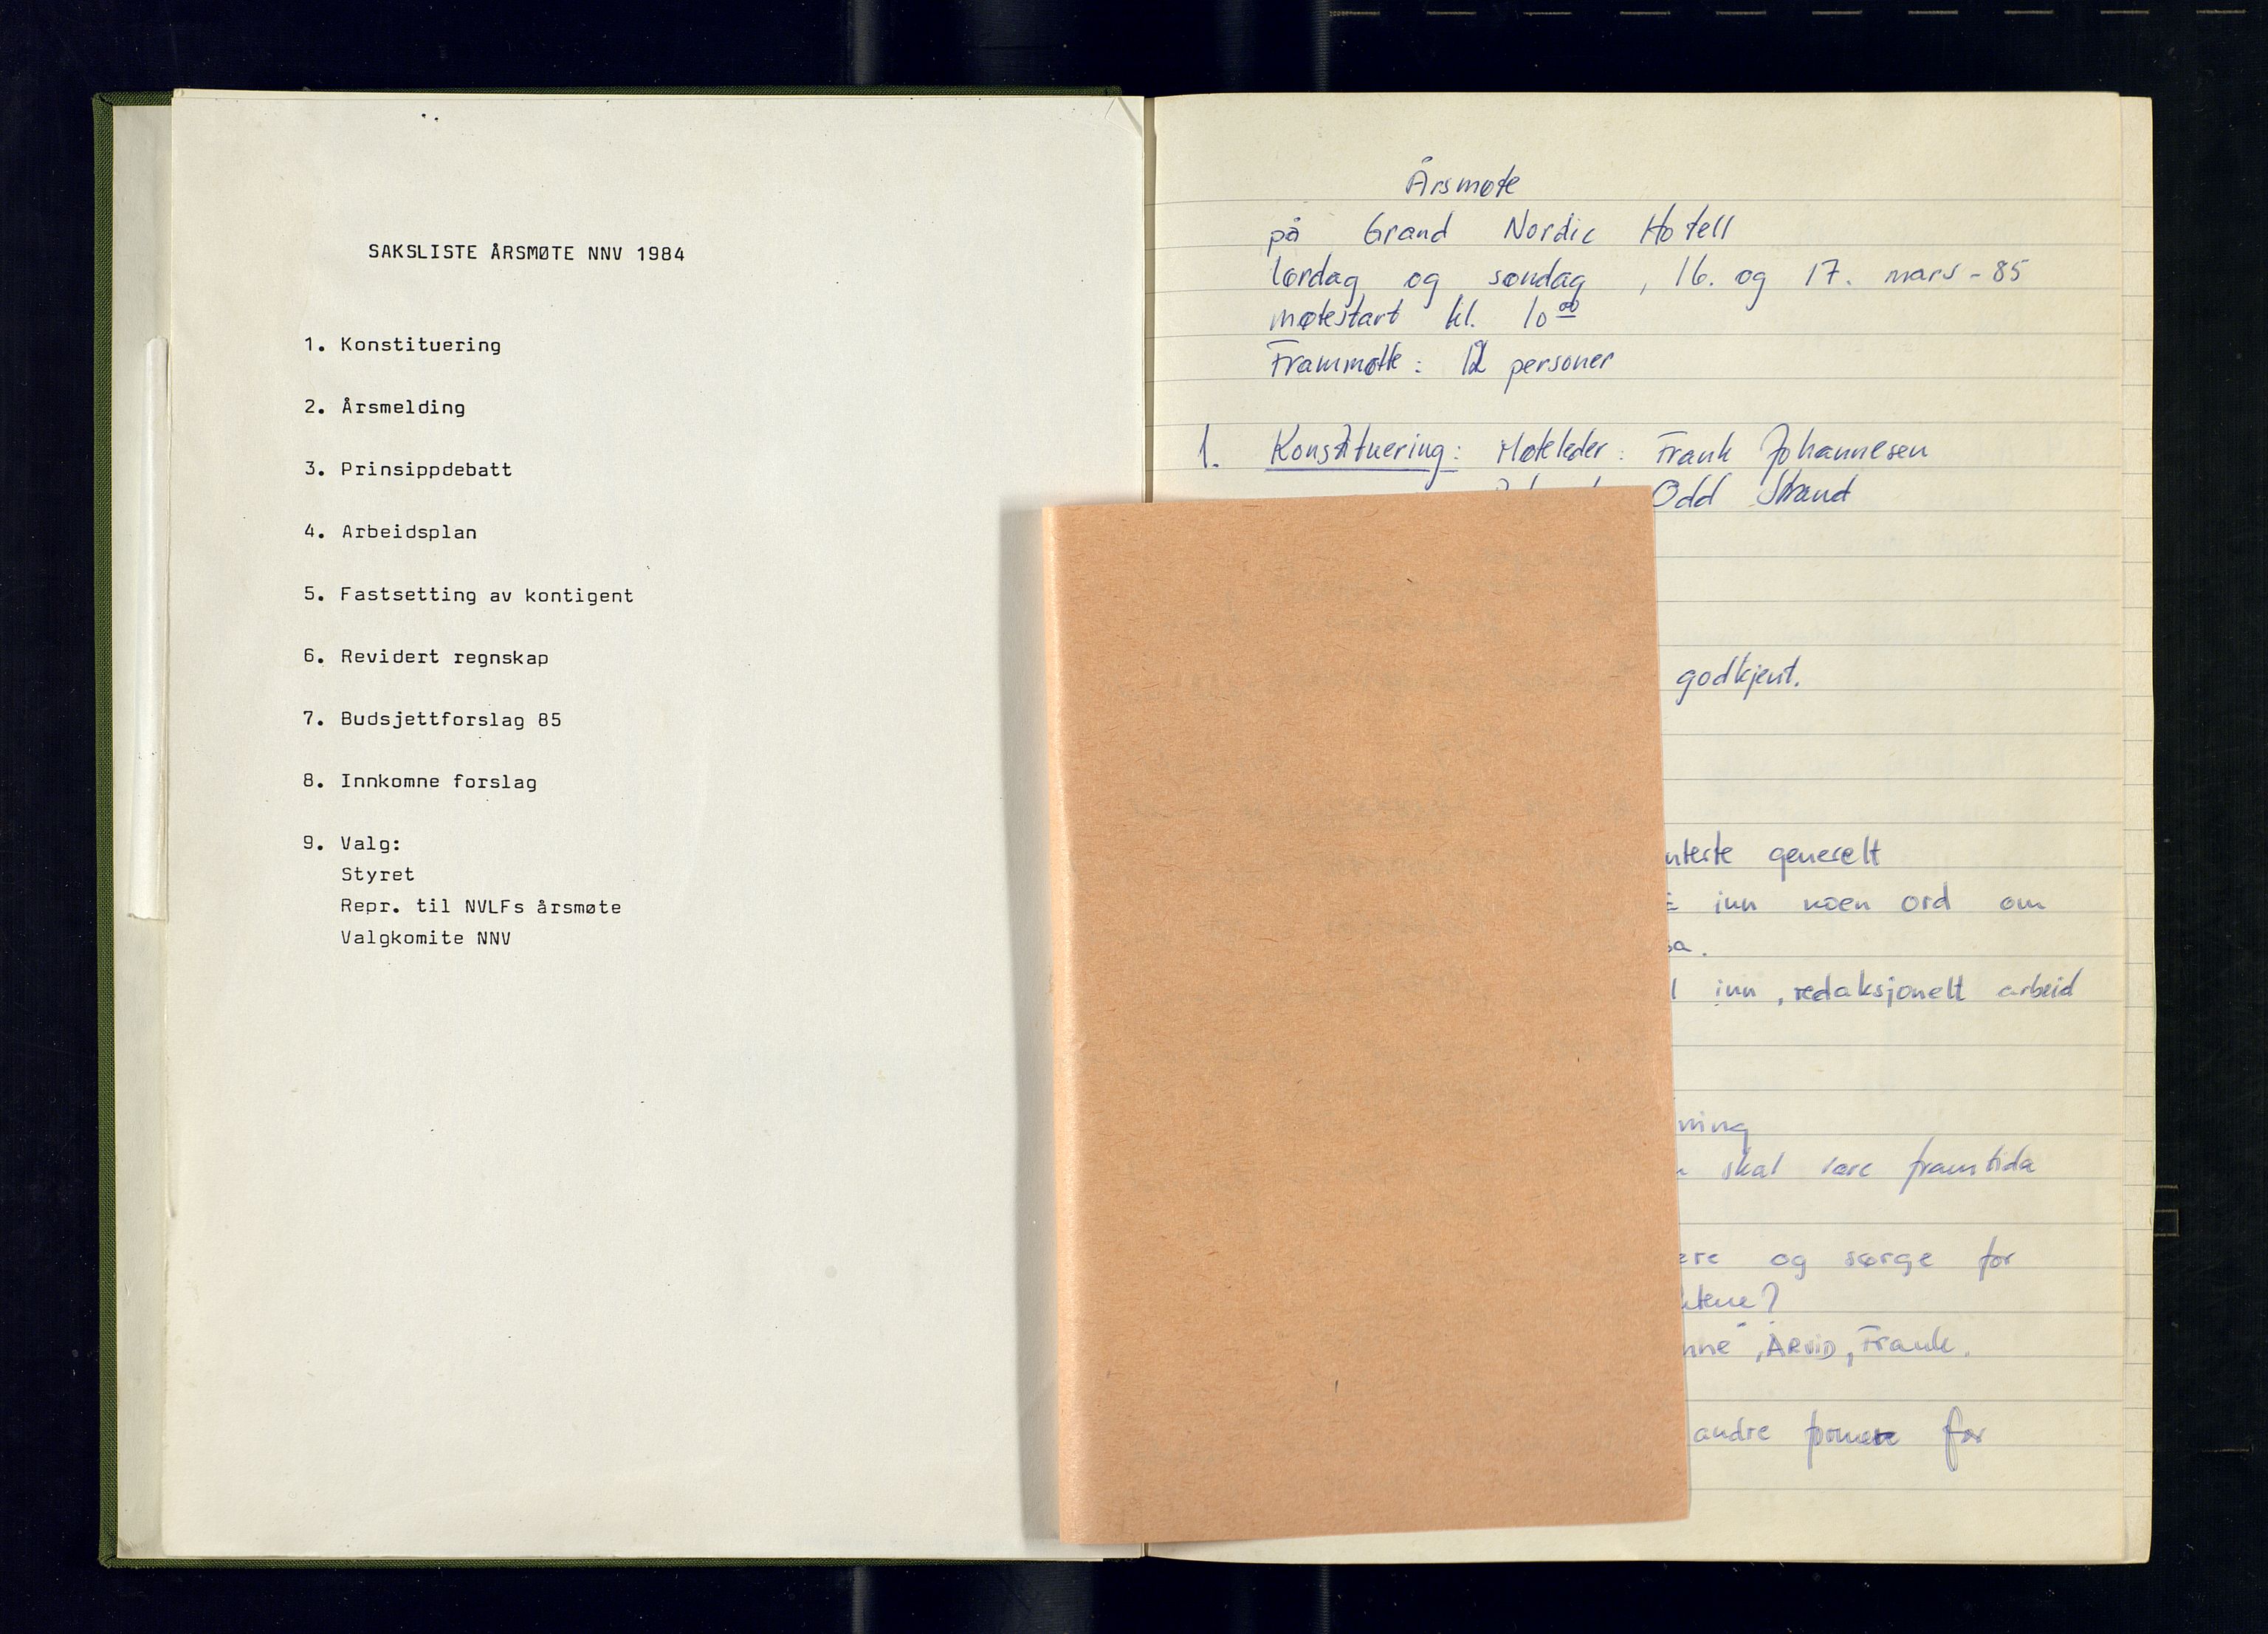 SAKSLISTE ÅRSMØTE NNV 1984
1. Konstituering
2. Årsmelding
3. Prinsippdebatt
4. Arbeidsplan
5. Fastsetting av kontigent
6. Revidert regnskap
7. Budsjettforslag 85
8. Innkomne forslag
9. Valg:
Styret
Repr. til NVLFs årsmøte
Valgkomite NNV
Årsmøte
på Grand Nordic Hotell
lørdag og søndag, 16. og 17. mars - 85
møtestart kl. 10 00
Frammøtte: 12 personer
1. Konstituering: Møteleder: Frank Johannesen
Odd Strand
godkjent.
generelt
inn noen ord om
inn, redaksjonelt arbeid
ning
skal være framtida
og sørge for
ktene?
, ARVID, Frank.
andre former for